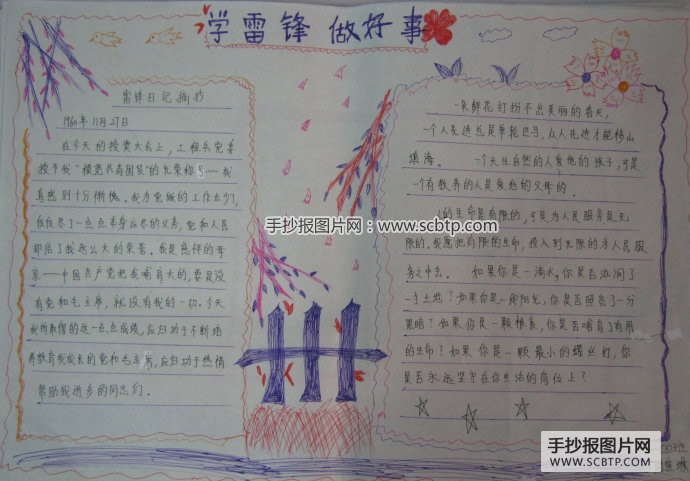 学雷锋 做好事
雷锋日记摘抄
1960年11月27日
在今天的授奖大会上，工程兵党委
授予我“模范共青团员”的光荣称号……我
真感到十分惭愧。我为党做的工作太少了，
仅仅尽了一点点本身应尽的义务，党和人民
却给了我这么大的荣誉。我是慈祥的母
亲——中国共产党把我哺育大的，要是没
有党和毛主席，就没有我的一切。今天
我所取得的这一点点成绩，应归功于不断培
养教育我成长的党和毛主席，应归功于热情
帮助我进步的同志们。
一朵鲜花打扮不出美丽的春天，
一个人先进总是单轮匹马，众人先进才能移山
填海。 一个天生自然的人爱他的孩子，可是
一个有教养的人是爱他的父母的。
人的生命是有限的，可是为人民服务是无
限的。我愿把有限的生命，投入到无限的为人民服
务之中去。 如果你是一滴水，你是否滋润了
一寸土地？如果你是一线阳光，你是否照亮了一分
黑暗？如果你是一颗粮食，你是否哺育了有用
的生命？如果你是一颗最小的螺丝钉，你
是否永远坚守在你生活的岗位上？
手抄报图片网：www.scbtp.com
手抄报图片网
WWW.SCBTP.COM